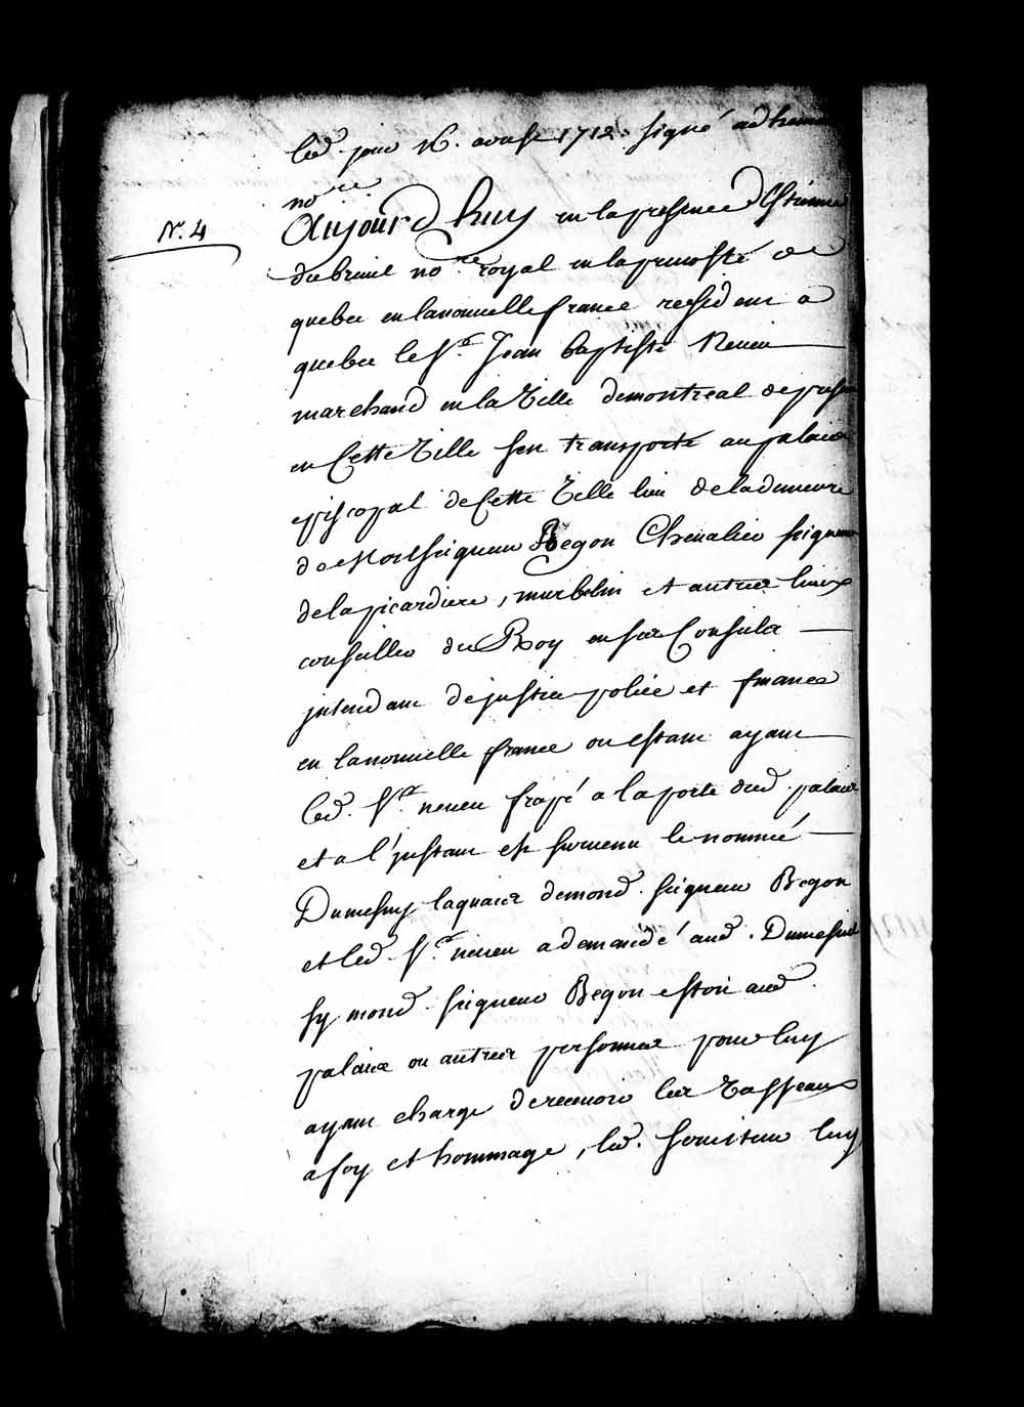 led. jour 16. aoust 1712. signé adhemar
no.re
N.° 4
Aujourd'huy en la presence d'Estienne
dubreuil no.re royal en la prevosté de
quebec en la nouvelle france resident a
quebec le S.r Jean baptiste Neveu
marchand en la Ville de montreal de present
en Cette Ville s'en transporté au palais
episcopal de Cette Ville lieu de la demeure
de Monseigneur Begon Chevalier seigneur
de la picardiere, murbelin et autres lieux
conseiller du Roy en ses Conseils
jntendant de justice police et finances
en la nouvelle france ou estant ayant
led. S.r neveu frapé a la porte dud. palais
et a l'jnstant est survenu le nommé
Dumesny laquais de mond. seigneur Begon
et led. S.r neveu a demandé aud. Dumesnil
sy mond. seigneur Begon estoit aud.
palais ou autres personnes pour luy
ayant charge de recevoir les Vasseaux
a foy et hommage, led. serviteur luy